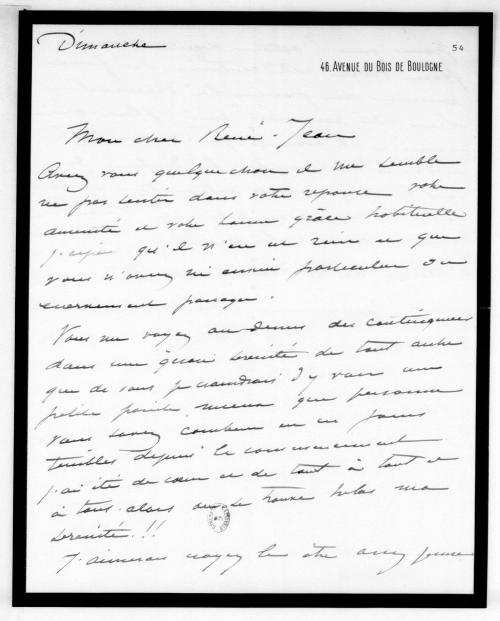 Dimanche
54
46, AVENUE DU BOIS DE BOULOGNE
Mon cher René-Jean
Avez vous quelque chose il me semble
ne pas sentir dans votre réponse votre
aménité et votre bonne grâce habituelle
j'espère qu'il n'en est rien et que
vous n'avez ni ennui particulier ou
énervement passager.
Vous me voyez au dessus des contingences
dans une quasi sérénité de tout autre
que de vous je craindrais d'y voir une
petite pointe, mieux que personne
vous savez combien en ces jours
terribles depuis le commencement
j'ai été de cœur et de tout à tout et
à tous. alors où se trouve hélas ma
sérénité.!!
J'aimerais croyez le être assez